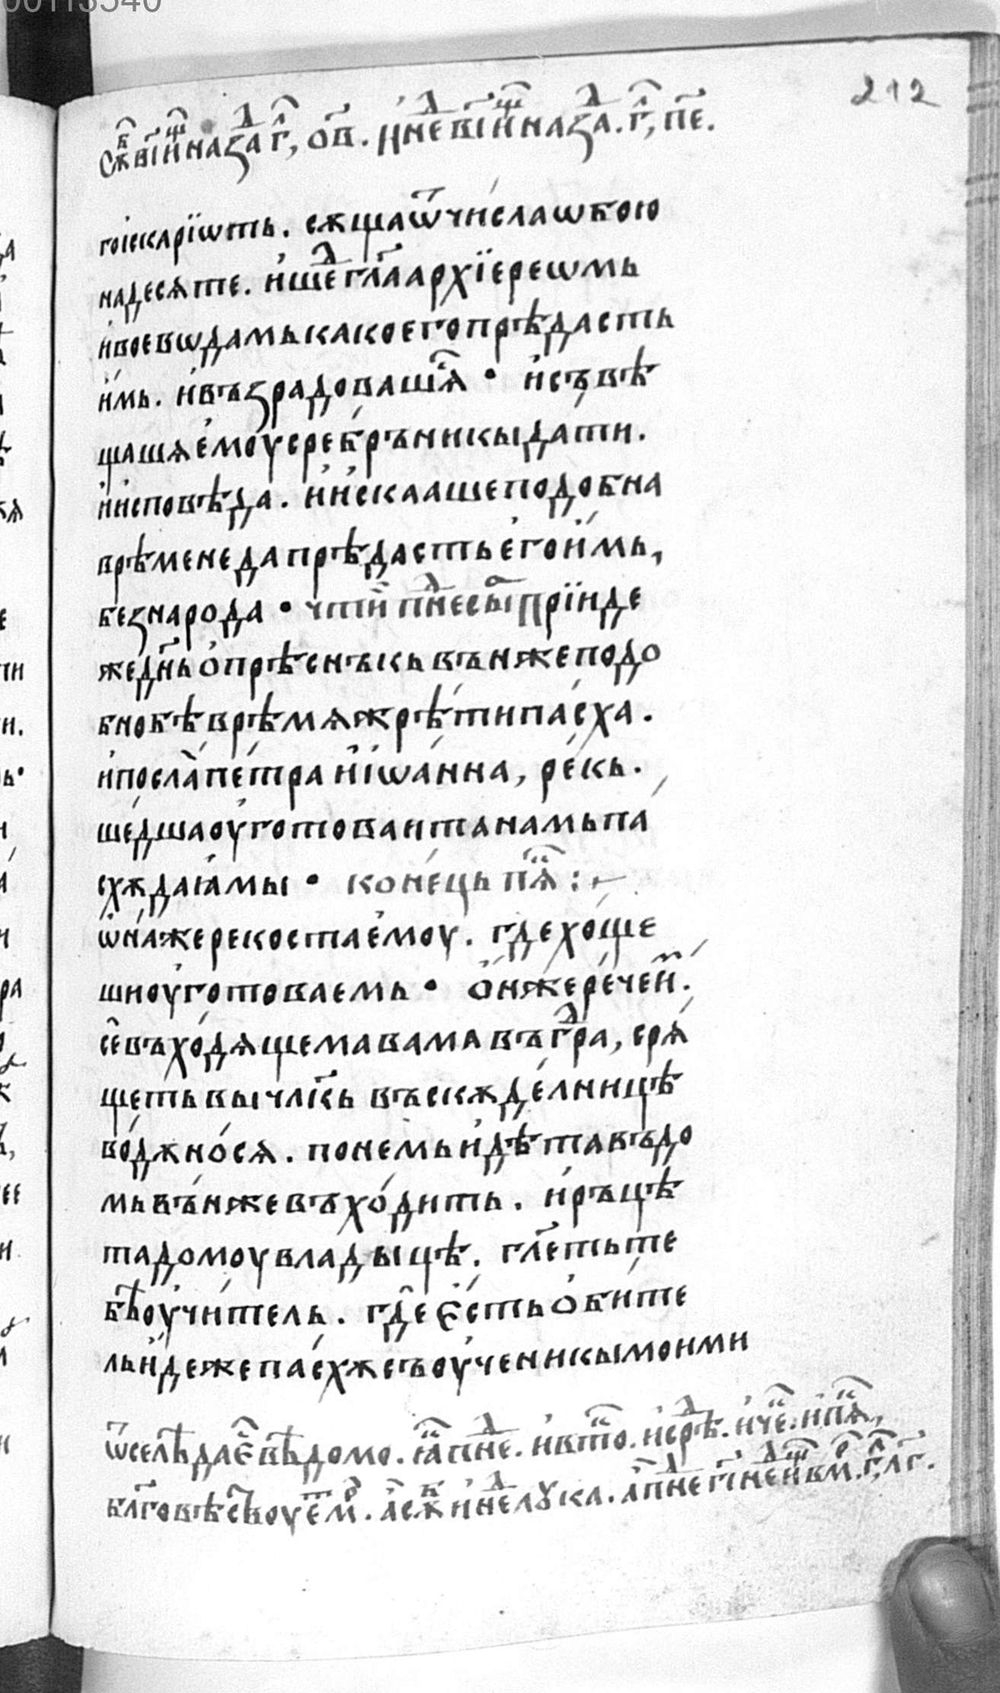 00113540
212
сѫ҃ в҃і н҃ на за҃ г҃, ѻ҃в. и҆ нє҃ в҃і н҃ на за҃. г҃, п҃є.
гоіскарїѡть. сѫща ѿ числа ѡбою
надесѧте. и҆ше҃ гл҃а архїереѡмь
и҆воевѡдамь како его прѣдасть
и҆мь. и҆възрадовашѧ҃ • и҆съвѣ
щашѧ е҆моу сребръникы дати.
и҆исповѣда. и҆и҆скааше подобна
врѣмене да прѣдасть е҆го и҆мь,
без народа • чти п҃не сы҃ прїиде
же дн҃ь ѻ҆прѣснъкь вънже подо
бно бѣ врѣмѧ жрѣти пасха.
и҆посла петра и҆їѡанна, рекь.
шедша оу҆готоваита намь па
схѫ да ꙗ҆мы • конець п҃ѧ҃ :
ѡ҆на же рекоста е҆моу. где хоще
ши оу҆готоваемь • ѻ҆нже рече и҆҃.
се҃ въходѧщема вама въ гра҃, срѧ
щеть вы чл҃кь въскѫделници
водѫ носѧ. по немь и҆дѣта въ до
мь вънже въходить. и҆ръцѣ
та домоу владыцѣ. гл҃еть те
бѣ оу҆читель. где е҆сть ѻ҆бите
ль и҆деже пасхѫ съ оу҆ченикы моими
ѿселѣ да є҃ вѣдомо. ꙗ҆҃ п҃не. и҆ вто҃. и҆ срѣ҃. и҆ че҃. и҆ п҃ѧ҃,